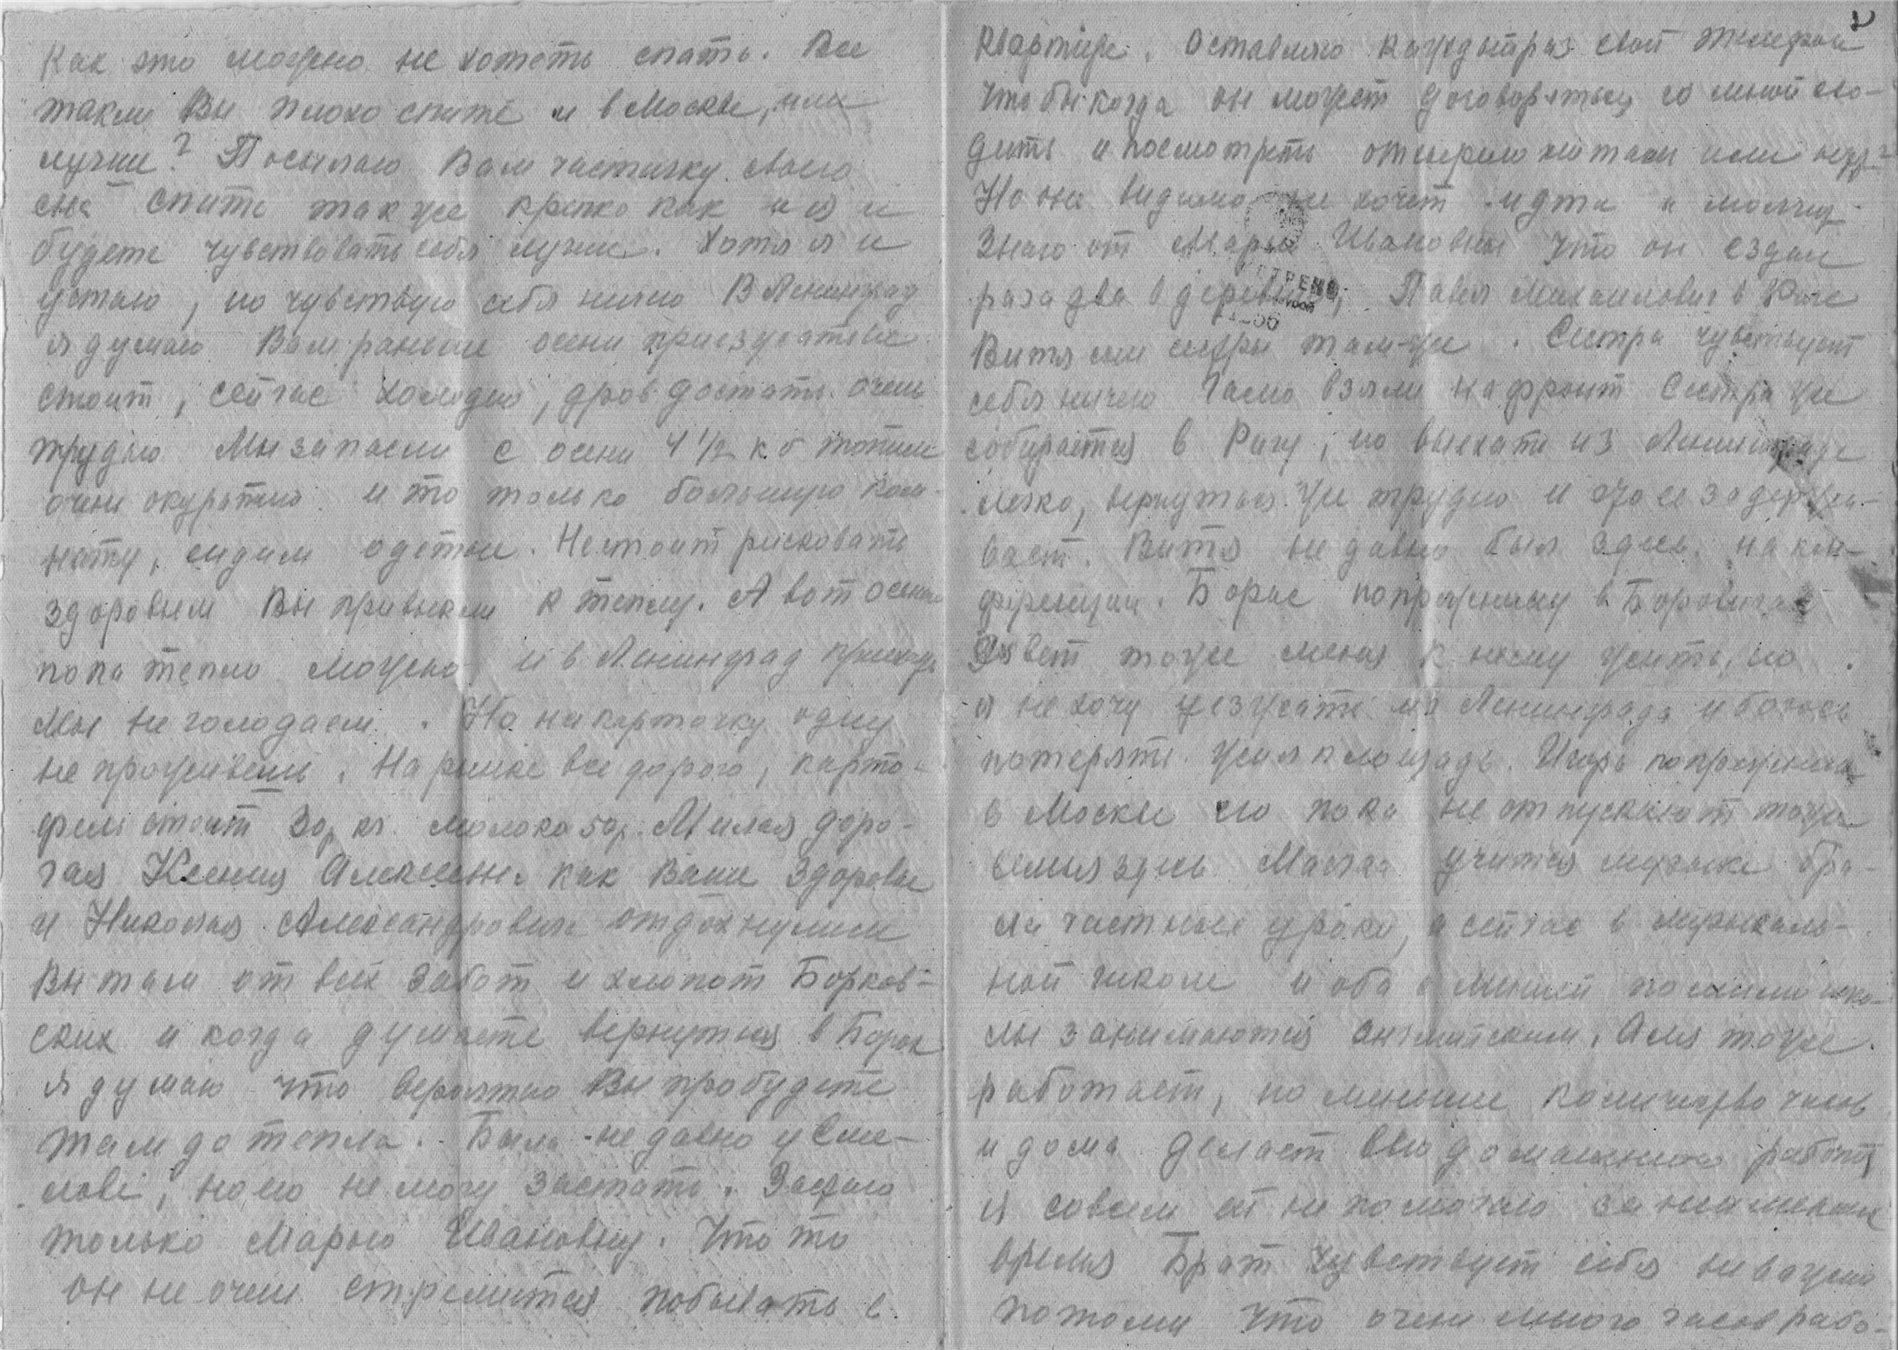 Как это можно не хотеть спать. Все
также Вы плохо спите и в Москве, или
лучше? Посылаю Вам частичку своего
сна спите также крепко как и я и
будете чувствовать себя лучше. Хотя я и
устаю, но чувствую себя ничего В Ленинград
я думаю Вам раньше осени приезжать не
стоит, сейчас холодно, дров достать очень
трудно Мы запасли с осени 4 1/2 к б топим
очень окуратно и то только большую ком-
нату, сидим одетые. Не стоит рисковать
здоровьем Вы привыкли к теплу. А вот осенью
пока тепло можно и в Ленинград
Мы не голодаем. Но на карточку одну
не проживешь. На рынке все дорого, карто-
фель стоит 30 р кг. молоко 50 р. Милая доро-
гая Ксения как Ваше здоровье
и Николая Александровича отдохнули ли
Вы там от всех забот и хлопот Борков-
ских и когда думаете вернуться в Борок
я думаю что вероятно Вы пробудете
там до тепла. Была недавно у Сме-
лове, но его не могу застать. Застаю
только Марью Ивановну. Что то
он не очень стремится побывать в
квартире. Оставляю каждый раз свой телефон
чтобы когда он может договориться со мной схо-
дить и посмотреть
Но он видимо не хочет идти и молчит
Знаю от Марьи Ивановны что он ездил
раза два в деревню, Павел Михайлович в Риге
Витя сестры там-же. Сестра чувствует
себя ничего взяли на фронт Сестра уже
собирается в Ригу, но выехать из Ленинграда
легко, вернуться же трудно и это ее задержи-
вает. Витя недавно был здесь на кон-
ференции. Борис попрежнему в Боровичах
Зовет тоже меня к нему жить, но
я не хочу уезжать из Ленинграда и боюсь
потерять жилплощадь. Игорь попрежнему
в Москве его пока не отпускают тоже
семья здесь учится музыке бра-
ли частные уроки, а сейчас в музыкаль-
ной школе и оба с помимо шко-
лы занимаются английским. Аля тоже
работает, но меньше количество часов
и дома делает всю домашнюю работу
я совсем ей не помогаю за неимением
время Брат чувствует себя неважно
потому что очень много часов рабо-